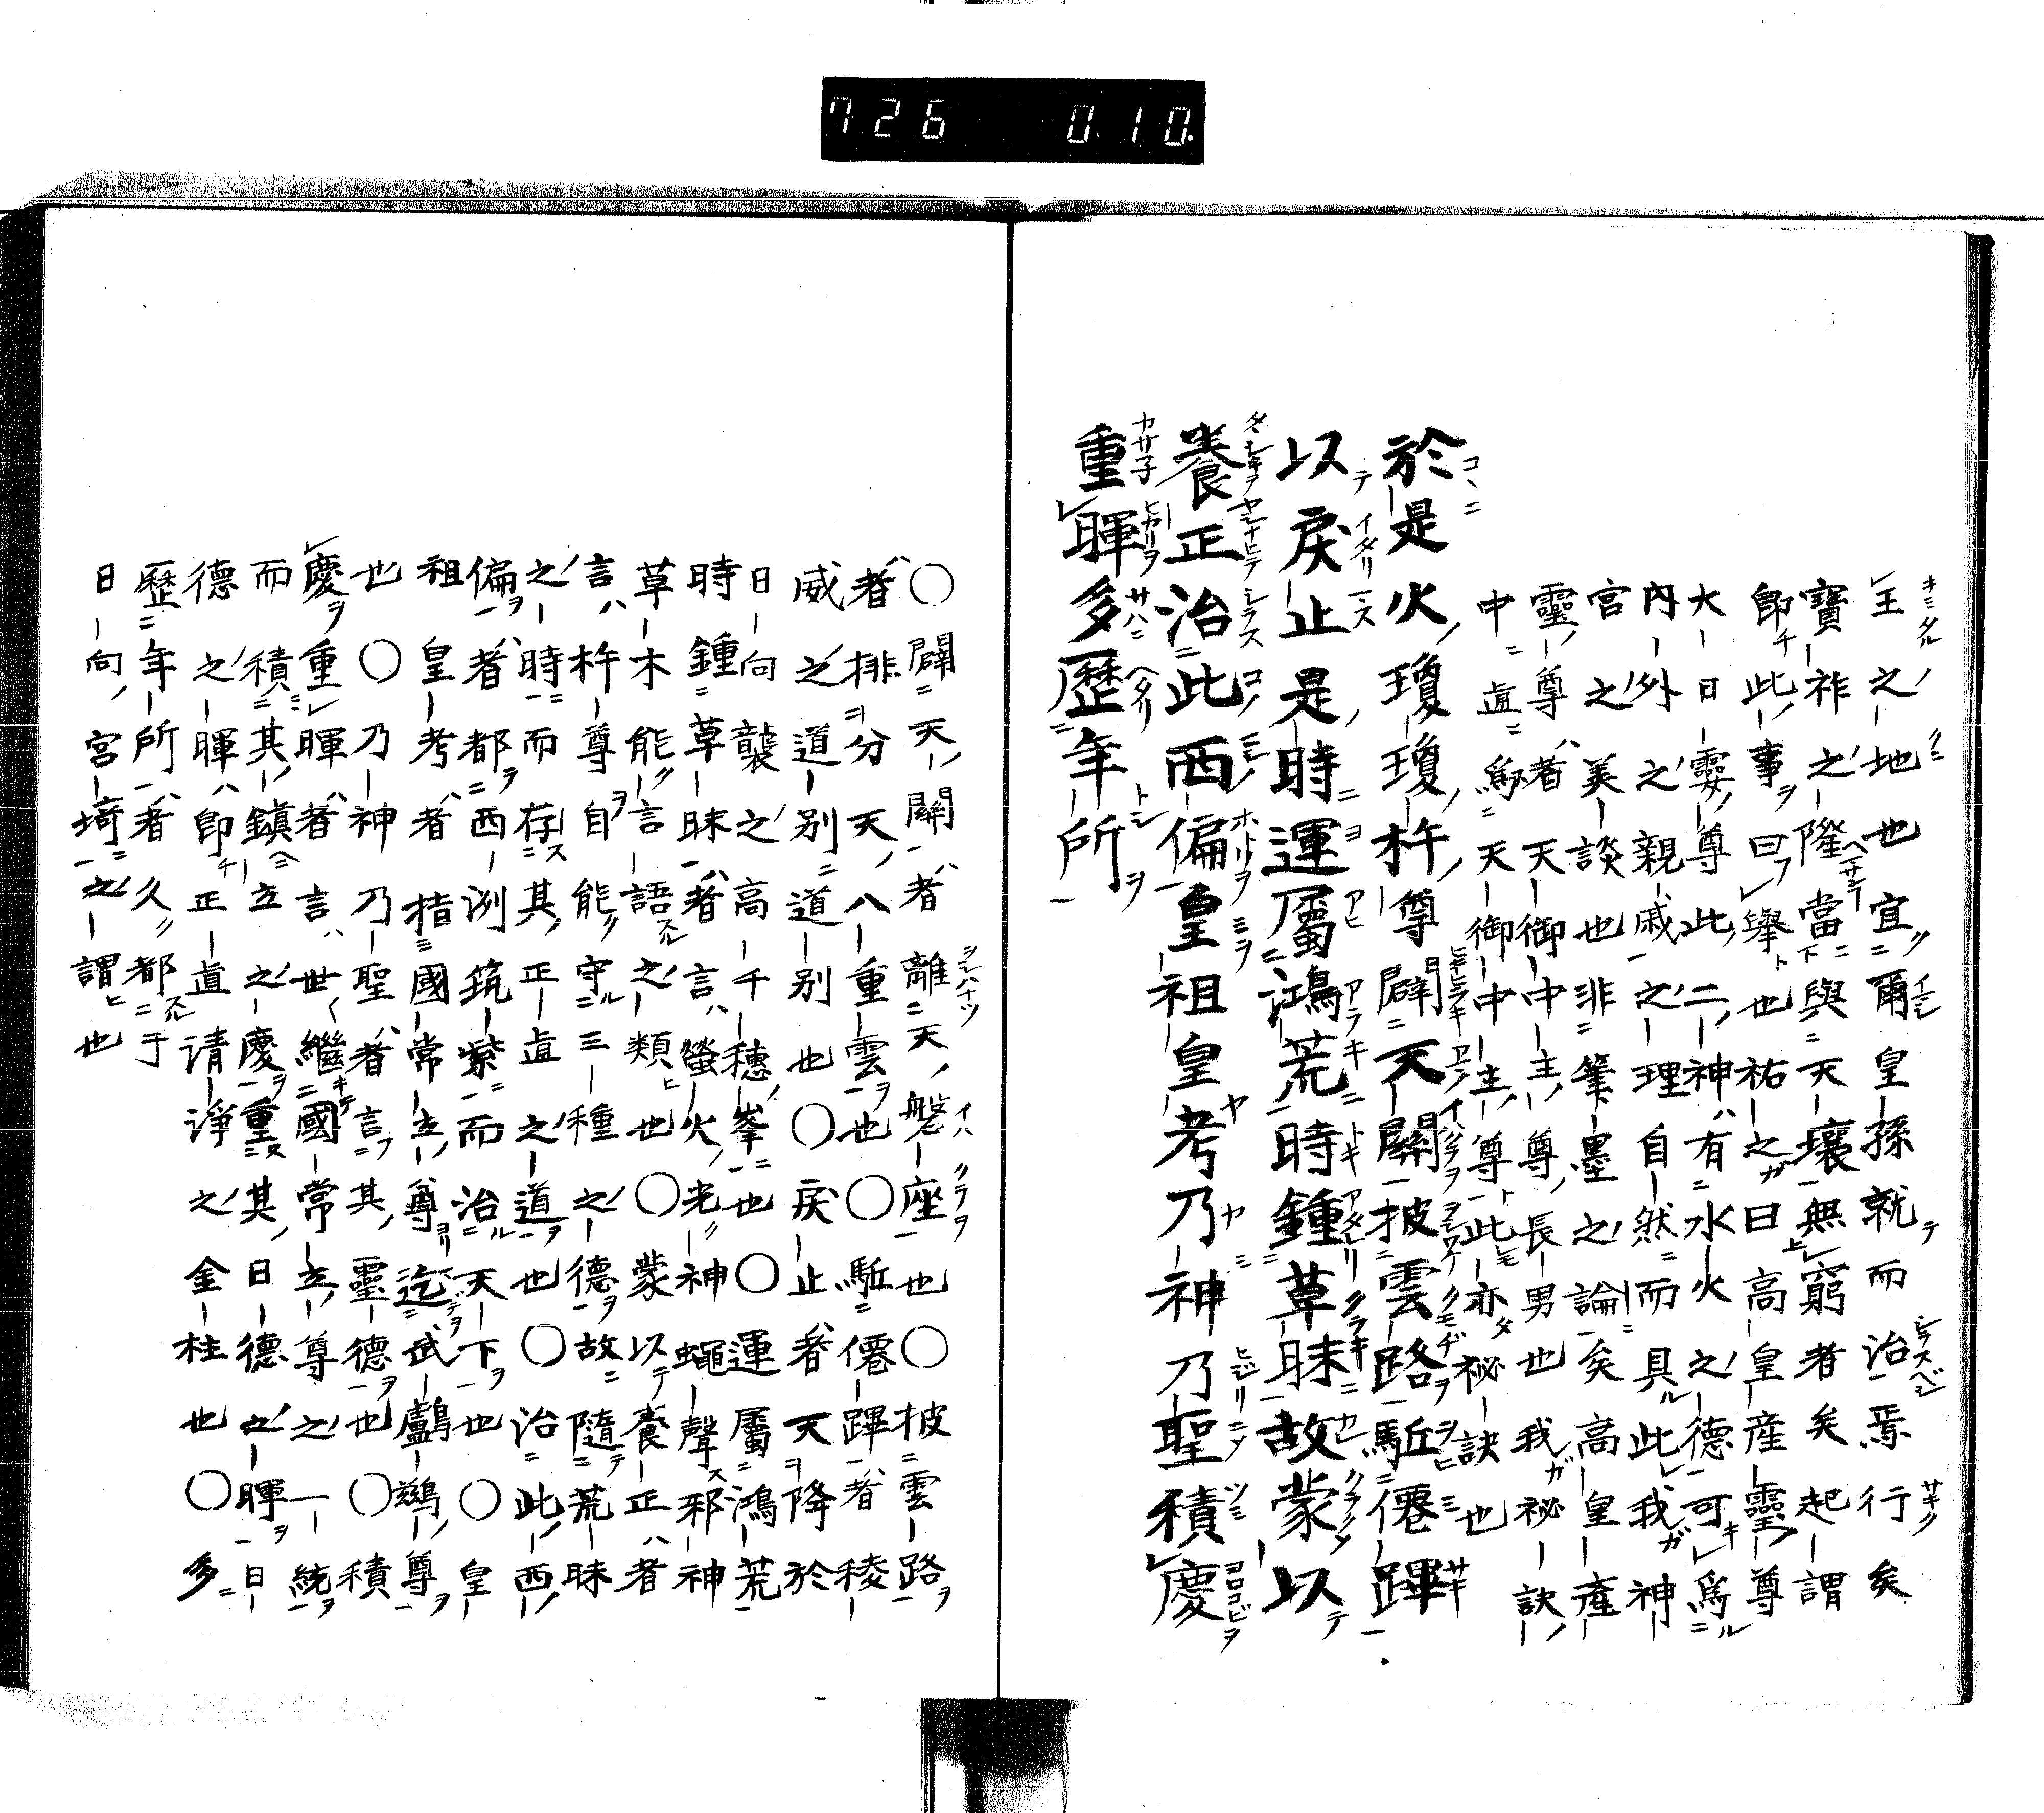 726 010
王之地也宜爾皇孫就而治焉行矣
寶祚之隆當與天壤無窮者矣起謂
卽此事曰擧也祐之曰高皇産靈尊
大日孁尊此二神有水火之德可爲
内外之親戚之理自然而具此我神
宮之美談也非筆墨之論矣高皇產
靈尊者天御中主尊長男也我祕訣
中直爲天御中主尊此亦祕訣也
於是火瓊瓊杵尊闢天關披雲路駈僊蹕
以戾止是時運屬鴻荒時鍾草昧故蒙以
養正治此西偏皇祖皇考乃神乃聖積慶
重暉多歷年所
〇闢天關者離天磐座也〇披雲路
者排分天八重雲也〇駈僊蹕者稜
威之道別道別也〇戾止者天降於
日向襲之高千穗峯也〇運屬鴻荒
時鍾草昧者言螢火光神蠅聲邪神
草木能言語之類也〇蒙以養正者
言杵尊自能守三種之德故隨荒昧
之時而存其正直之道也〇治此西
偏者都西洲筑紫而治天下也〇皇
祖皇考者指國常立尊迄武鸕鷀尊
也〇乃神乃聖者言其靈德也〇積
慶重暉者言世繼國常立尊之一統
而積其鎭立之慶重其日德之暉日
德之暉卽正直请淨之金柱也〇多
歷年所者久都于
日向宮埼之謂也